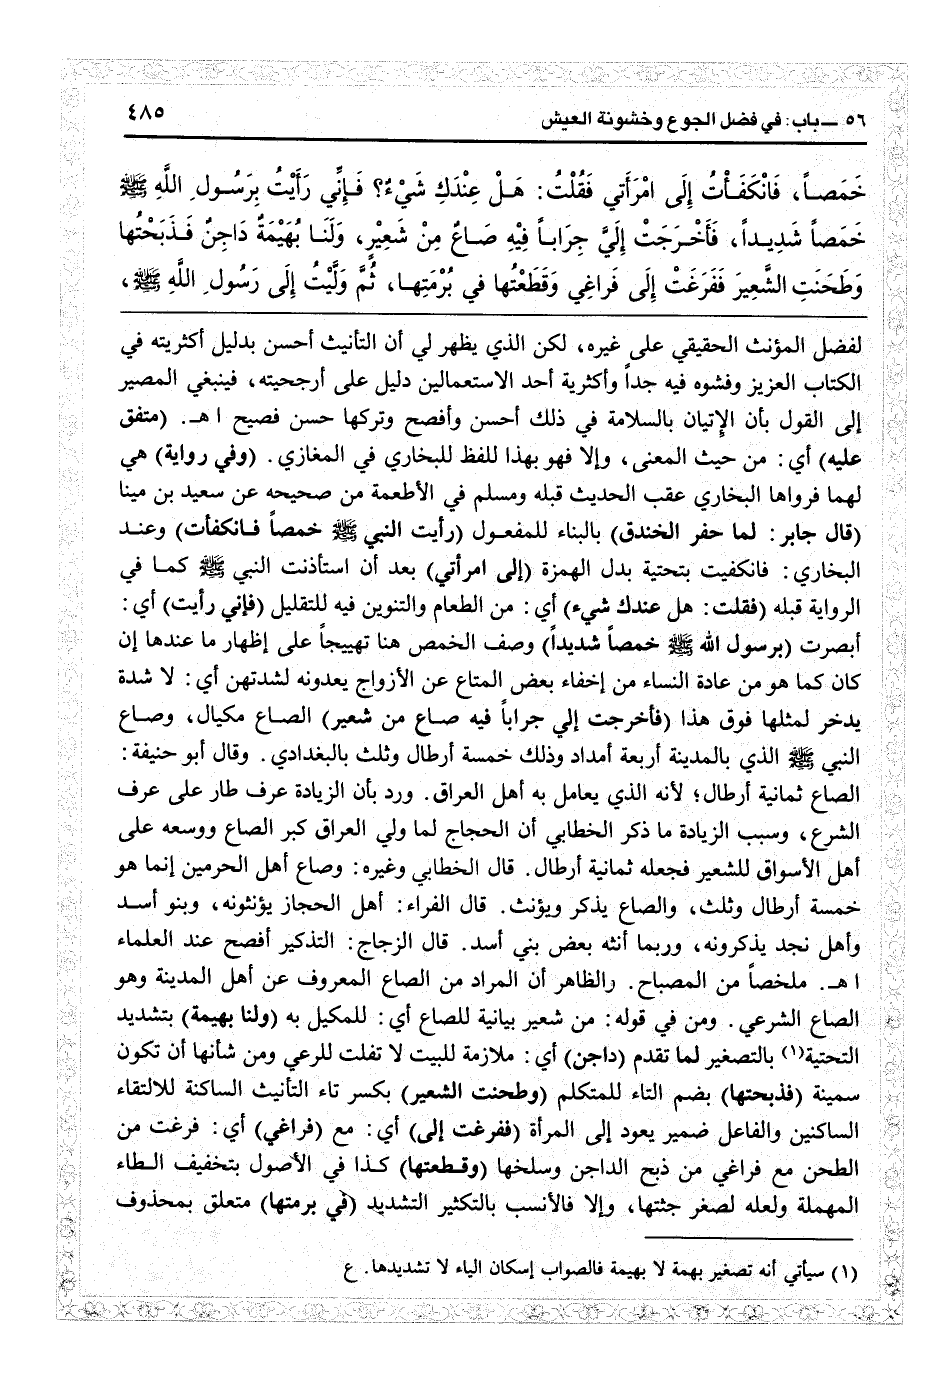 ٥٦ ــ باب: في فضل الجوع وخشونة العيش
٤٨٥
خَمَصاً، فَانْكَفَأْتُ إِلَى امْرَأَتي فَقُلْتُ: هَلْ عِنْدَكِ شَيْءٌ؟ فَإِنِّي رَأَيْتُ بِرَسُولِ اللَّهِ ﷺ
خَمَصاً شَدِيداً، فَأَخْرَجَتْ إِلَيَّ جِرَاباً فِيْهِ صَاعٌ مِنْ شَعِيرٍ، وَلَنَا بُهَيْمَةٌ دَاجِنٌ فَذَبَحْتُها
وَطَحَنَتِ الشَّعِيرَ فَفَرَغَتْ إِلَى فَرَاغِي وَقَطَعْتُها في بُرْمَتِهـا، ثُمَّ وَلَّيْتُ إِلَى رَسُولِ اللَّهِ ﷺ،
لفضل المؤنث الحقيقي على غيره، لكن الذي يظهر لي أن التأنيث أحسن بدليل أكثريته في
الكتاب العزيز وفشوه فيه جداً وأكثرية أحد الاستعمالين دليل على أرجحيته، فينبغي المصير
إلى القول بأن الإتيان بالسلامة في ذلك أحسن وأفصح وتركها حسن فصيح ا هـ. (متفق
عليه) أي: من حيث المعنى، وإلا فهو بهذا للفظ للبخاري في المغازي. (وفي رواية) هي
لهما فرواها البخاري عقب الحديث قبله ومسلم في الأطعمة من صحيحه عن سعيد بن مينا
(قال جابر: لما حفر الخندق) بالبناء للمفعول (رأيت النبي ﷺ خمصاً فانكفأت) وعند
البخاري: فانكفيت بتحتية بدل الهمزة (إلى امرأتي) بعد أن استأذنت النبي ﷺ كما في
الرواية قبله (فقلت: هل عندك شيء) أي: من الطعام والتنوين فيه للتقليل (فإني رأيت) أي:
أبصرت (برسول الله ﷺ خمصاً شديداً) وصف الخمص هنا تهييجاً على إظهار ما عندها إن
كان كما هو من عادة النساء من إخفاء بعض المتاع عن الأزواج يعدونه لشدتهن أي: لا شدة
يدخر لمثلها فوق هذا (فأخرجت إلي جراباً فيه صاع من شعير) الصاع مكيال، وصاع
النبي ﷺ الذي بالمدينة أربعة أمداد وذلك خمسة أرطال وثلث بالبغدادي. وقال أبو حنيفة:
الصاع ثمانية أرطال؛ لأنه الذي يعامل به أهل العراق. ورد بأن الزيادة عرف طار على عرف
الشرع، وسبب الزيادة ما ذكر الخطابي أن الحجاج لما ولي العراق كبر الصاع ووسعه على
أهل الأسواق للشعير فجعله ثمانية أرطال. قال الخطابي وغيره: وصاع أهل الحرمين إنما هو
خمسة أرطال وثلث، والصاع يذكر ويؤنث. قال الفراء: أهل الحجاز يؤنثونه، وبنو أسد
وأهل نجد يذكرونه، وربما أنثه بعض بني أسد. قال الزجاج: التذكير أفصح عند العلماء
ا هـ. ملخصاً من المصباح. رالظاهر أن المراد من الصاع المعروف عن أهل المدينة وهو
الصاع الشرعي. ومن في قوله: من شعير بيانية للصاع أي: للمكيل به (ولنا بهيمة) بتشديد
التحتية(١) بالتصغير لما تقدم (داجن) أي: ملازمة للبيت لا تفلت للرعي ومن شأنها أن تكون
سمينة (فذبحتها) بضم التاء للمتكلم (وطحنت الشعير) بكسر تاء التأنيث الساكنة للالتقاء
الساكنين والفاعل ضمير يعود إلى المرأة (ففرغت إلى) أي: مع (فراغي) أي: فرغت من
الطحن مع فراغي من ذبح الداجن وسلخها (وقطعتها) كذا في الأصول بتخفيف الطاء
المهملة ولعله لصغر جثتها، وإلا فالأنسب بالتكثير التشديد (في برمتها) متعلق بمحذوف
(١) سيأتي أنه تصغير بهمة لا بهيمة فالصواب إسكان الياء لا تشديدها. ع